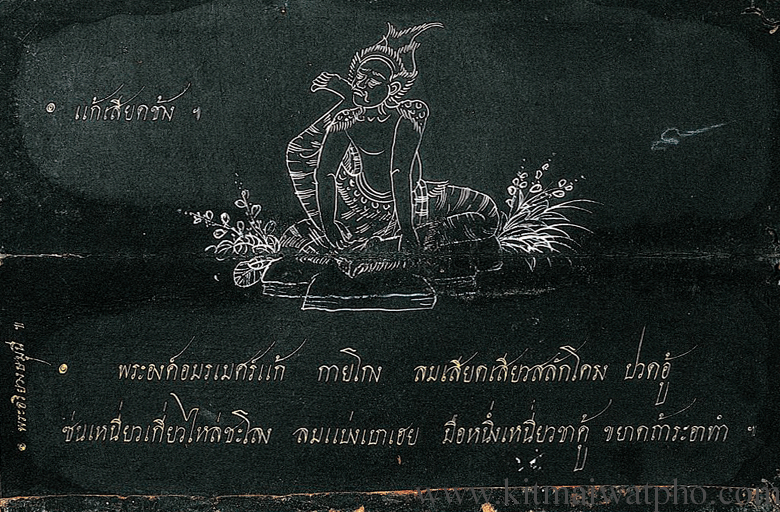 ๏ แก้เสียดข้าง ฯ
๏ พระองค์อมรเมศร์แก้ กายโกง ลมเสียดเสียวสลักโคลง ปวดอู้
ซ่นเหนี่ยวเกี่ยวไหล่ชะโลง ลมแบ่ง เฮย มือหนึ่งเหนี่ยวขาคู้ ขยาดถ้าระอาทำ ฯ
๏ พระอริยวงษมุนี ฯ
www.kitmaiwatpho.com